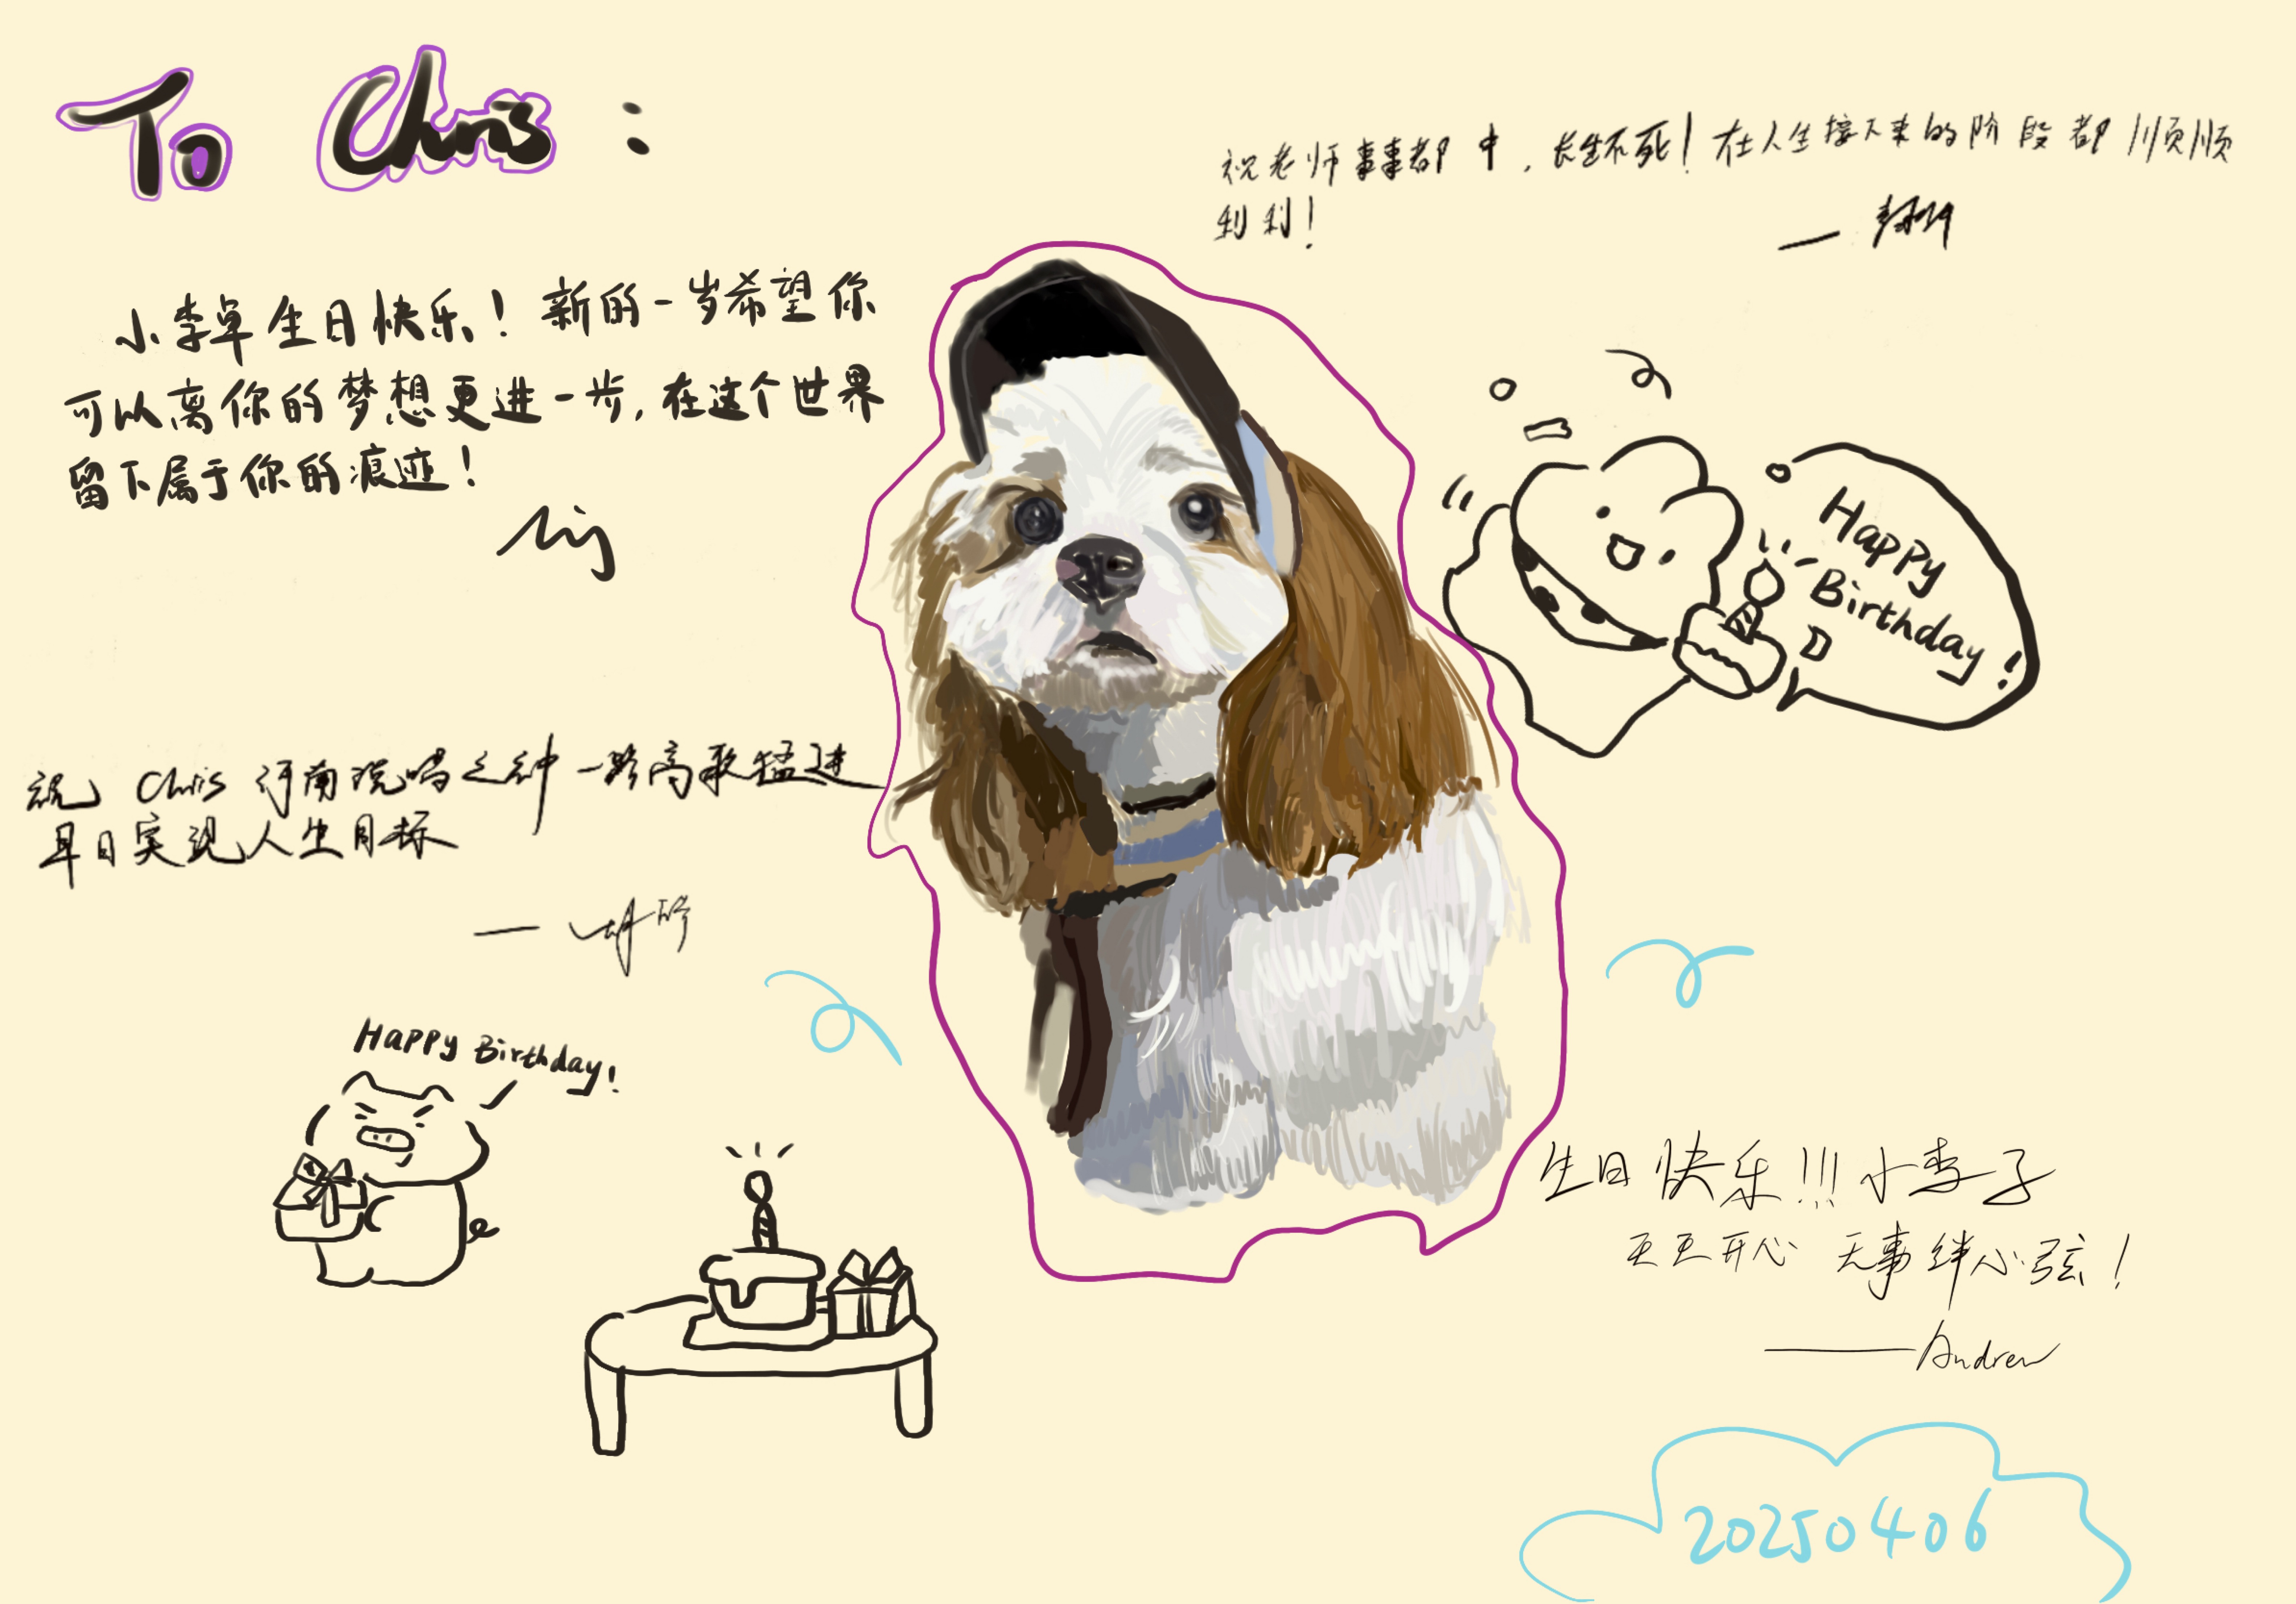 To Chris:
祝老师事事都中，长生不死！在人生接下来的阶段都顺顺
利利！
小李卓生日快乐！新的一岁希望你
可以离你的梦想更进一步，在这个世界
留下属于你的痕迹！
Happy
Birthday!
:D
祝Chris河南说唱之神一路高歌猛进
早日实现人生目标
Happy Birthday!
生日快乐!!!小李子
天天开心 无事绊心弦！
——Andrew
20250406